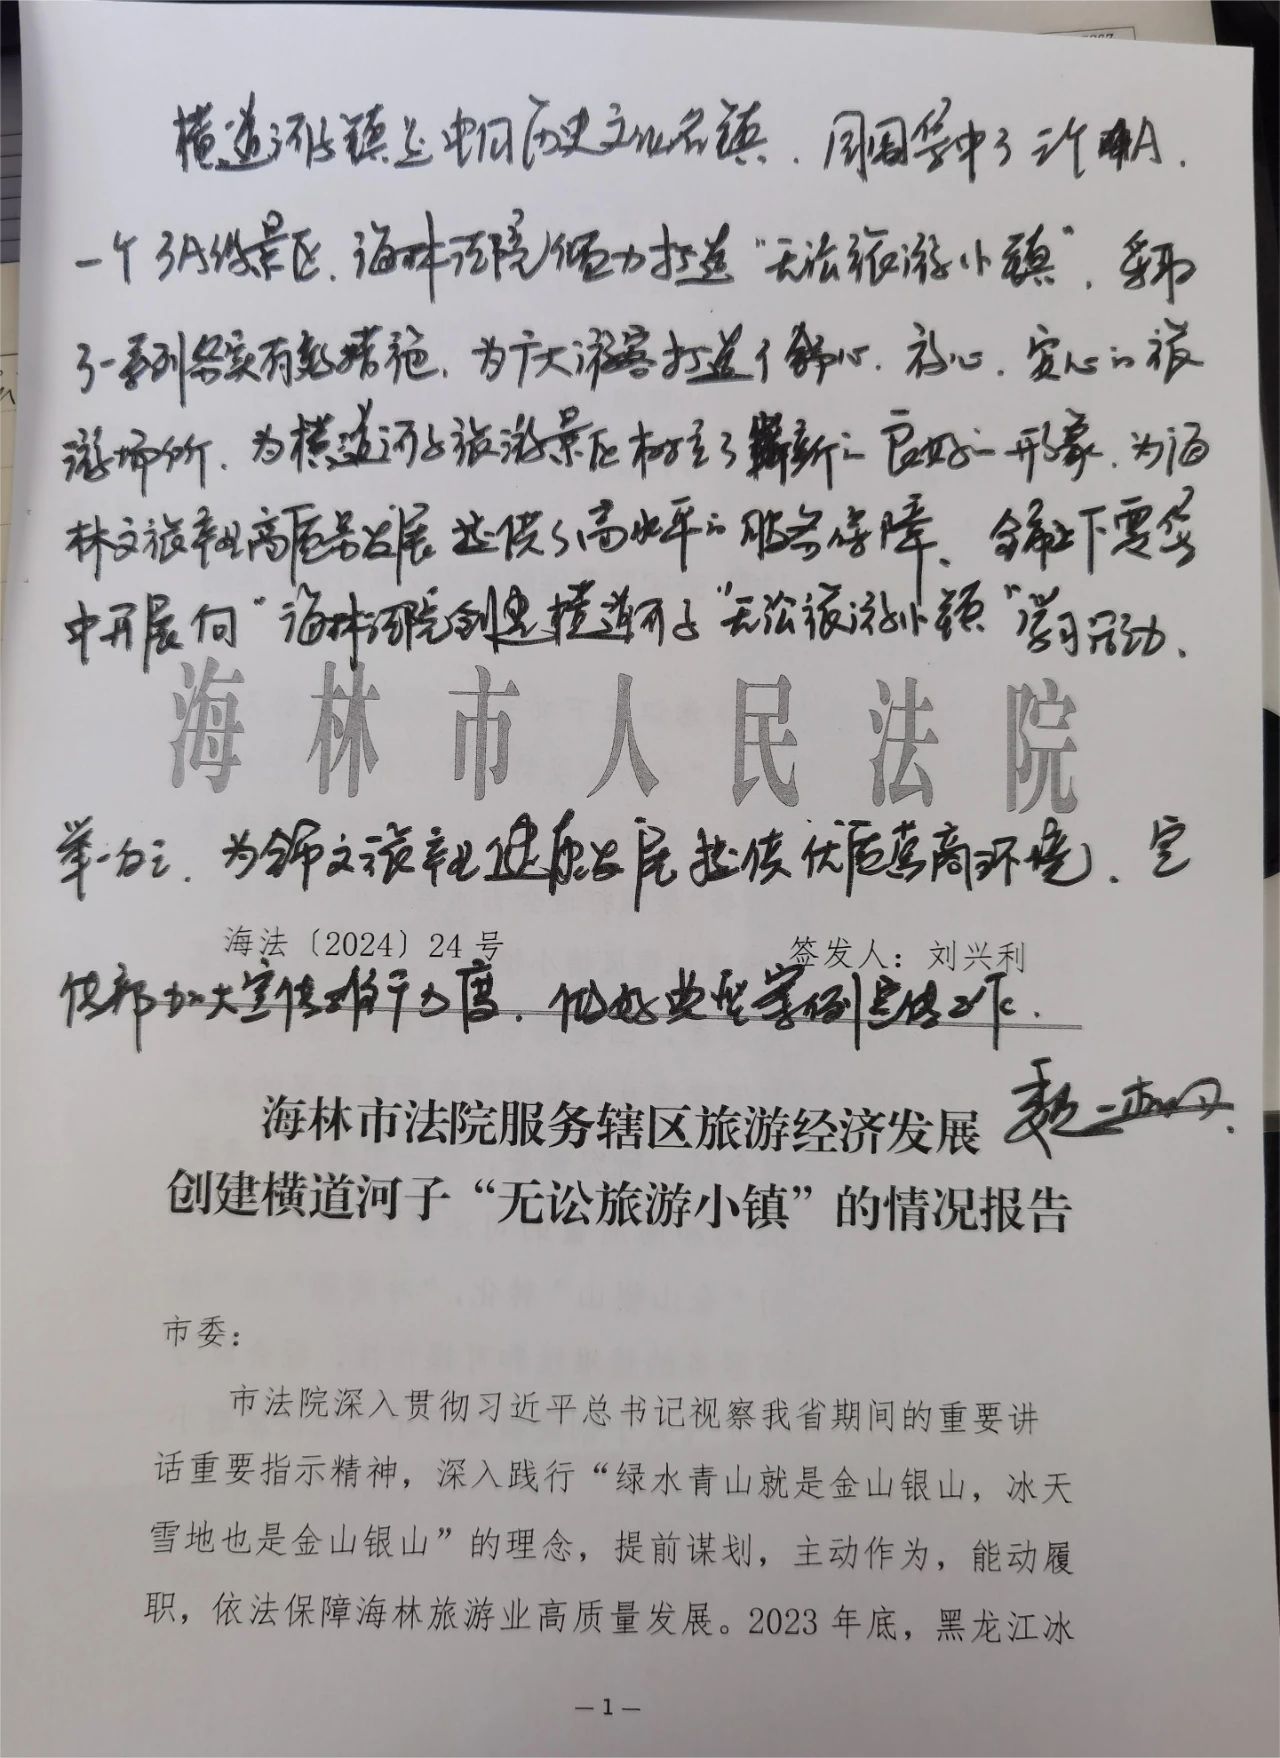 横道河子镇是中国历史文化名镇，周围集中了三个4A、
一个3A级景区，海林法院倾力打造“无讼旅游小镇”，采取
了一系列务实有效措施，为广大游客打造了舒心、放心、安心的旅
游场所，为横道河子旅游景区树立了崭新的良好的形象，为海
林文旅产业高质量发展提供了高水平的服务保障、全市上下要集
中开展向“海林法院创建横道河子“无讼旅游小镇”学习活动，
海林市人民法院
举一反三，为全市文旅产业健康发展提供优质营商环境，宣
海法〔2024〕24号 签发人：刘兴利
传部加大宣传推介力度，做好典型案例宣传工作．
海林市法院服务辖区旅游经济发展
创建横道河子“无讼旅游小镇”的情况报告
市委：
市法院深入贯彻习近平总书记视察我省期间的重要讲
话重要指示精神，深入践行“绿水青山就是金山银山，冰天
雪地也是金山银山”的理念，提前谋划，主动作为，能动履
职，依法保障海林旅游业高质量发展。2023年底，黑龙江冰
—1—